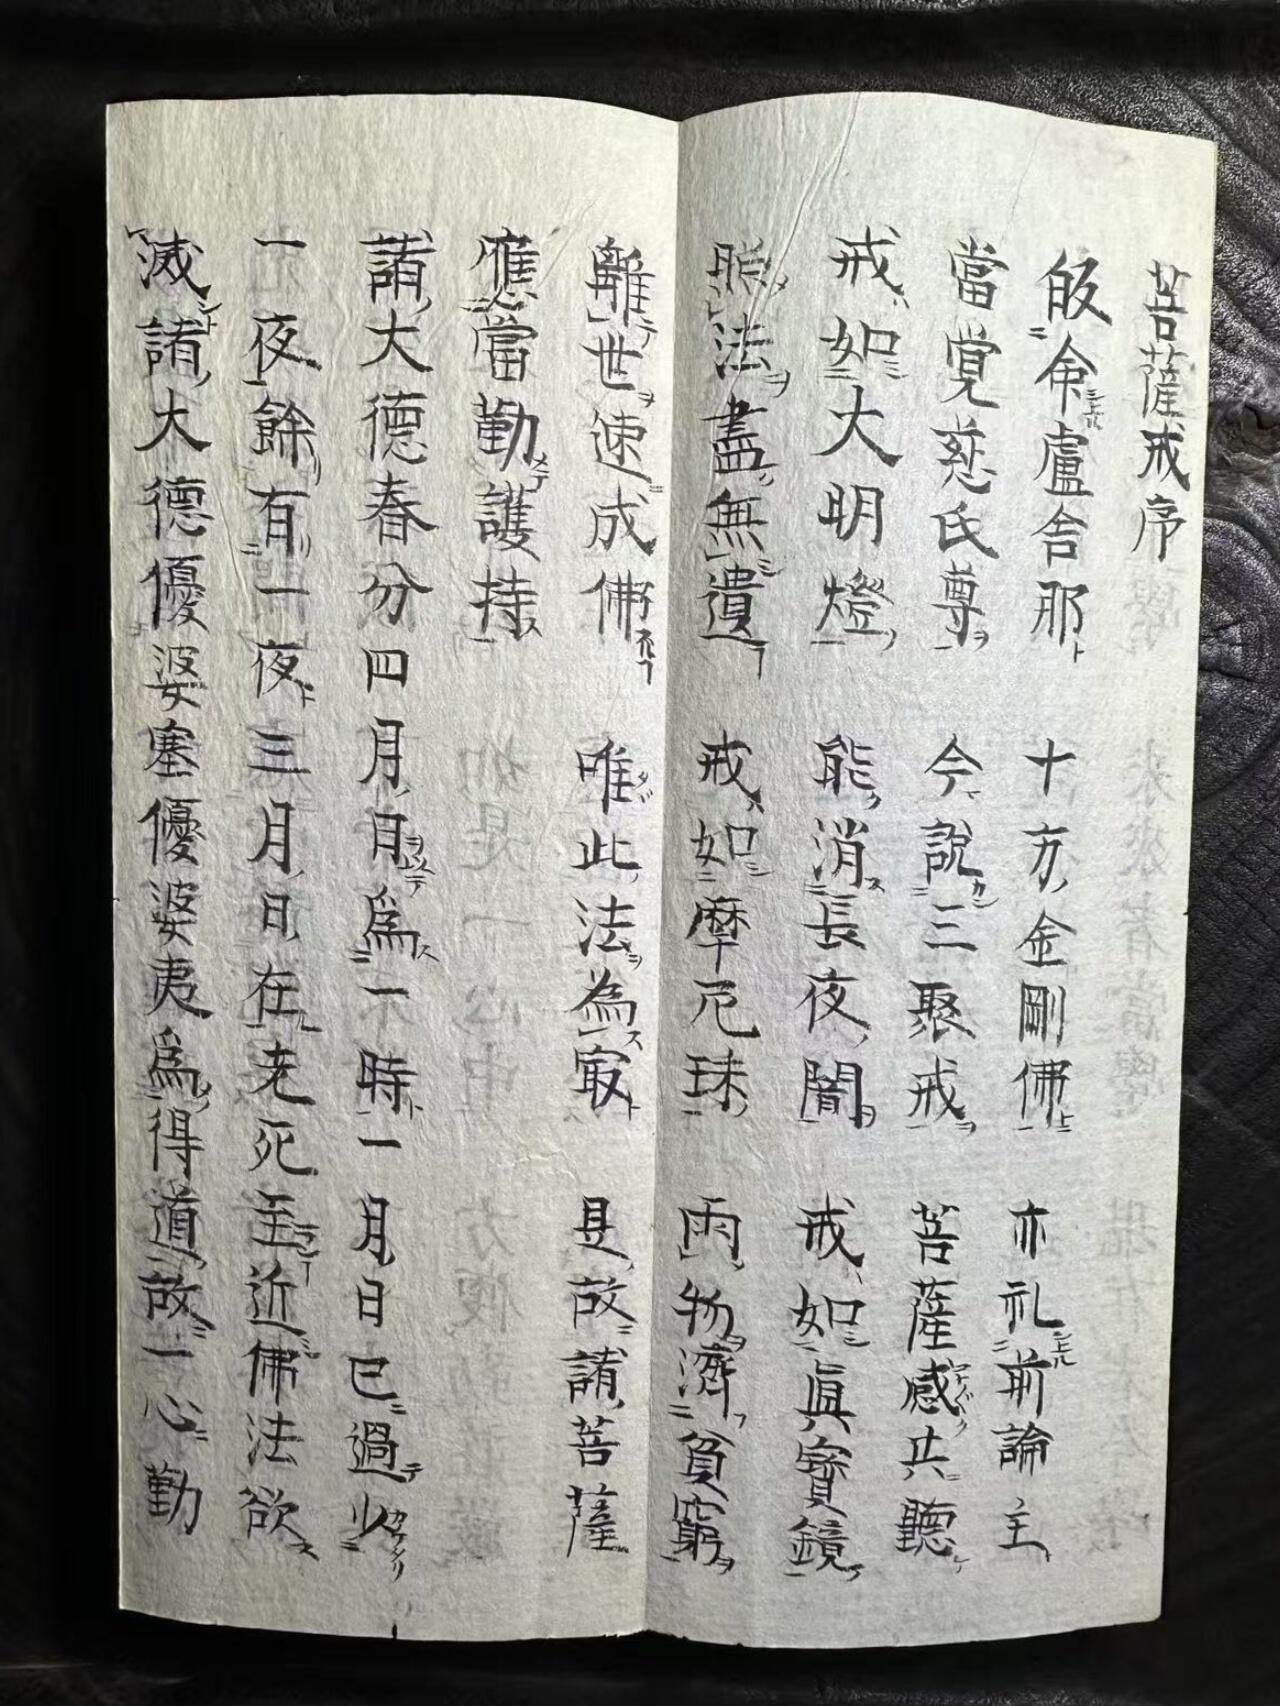 菩薩戒序
皈命盧舍那 十方金剛佛 亦礼前論主
當覚慈氏尊 今說三聚戒 菩薩咸共聽
戒如大明燈 能消長夜闇 戒如眞寳鏡
照法盡無遺 戒如摩尼珠 雨物濟貧窮
離世速成佛 唯此法為㝡 是故諸菩薩
應當勤護持
諸大德春分四月日爲一時一月日已過少
一夜餘有一夜三月日在老死至近佛法欲
滅諸大德優婆塞優婆夷爲得道故一心勤